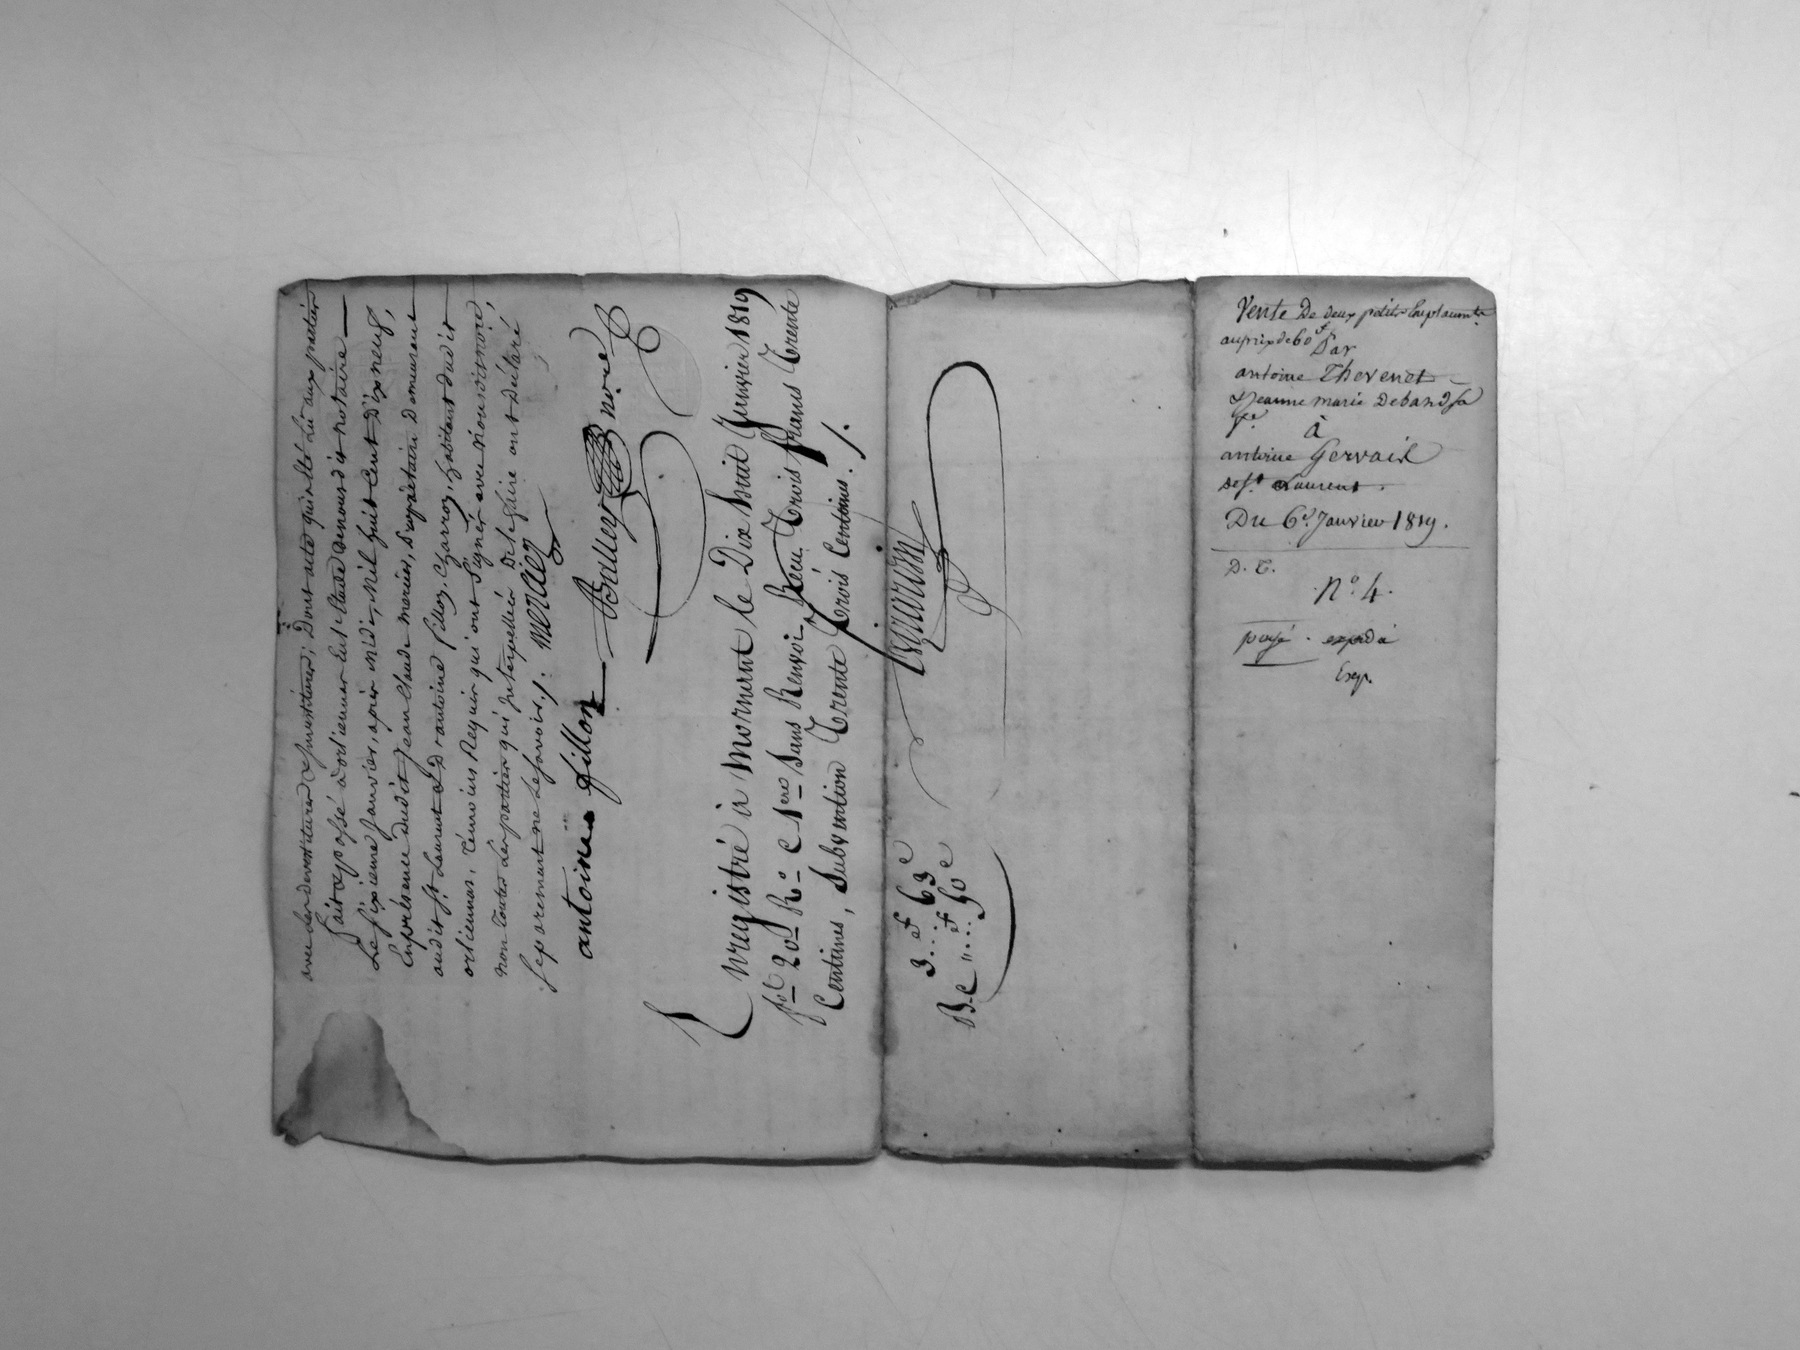 avec les devestitures & investitures; Dont acte qui a été Lû aux parties
Fait et passé à orliennas En l'Etude de nous dit notaire
Le Sixieme Janvier, après Midi, Mil huit Cent Dix neuf,
En présence dudit Jean Claude mercier, Propriétaire Demeurant
audit St. Laurent & D'antoine fillon, Charron, habitant dudit
orliennas, témoins Requis qui ont Signés avec Nous dit notaire,
non toutes Les parties qui Interpellées De le faire ont Déclaré
Séparement ne Le Savoir ./. mercier
antoine fillon
Balley nore
Enregistré à Mornant le Dix huit Janvier 1819
fol 20 Ro C 1ere Sans Renvoi, Reçu Trois francs Trente
Centimes, Subvention Trente Trois Centimes ./.
3 .. f 63 c
B. C " ... f 50 c
Vente De deux petits Emplacemts.
au prix de 60 f
Par
antoine Thevenet
& Jeanne marie Deband Sa
fe.
à
antoine Gervais
de St. Laurent.
Du 6e. Janvier 1819.
D. T.
No 4.
payé . expédié
Exp.